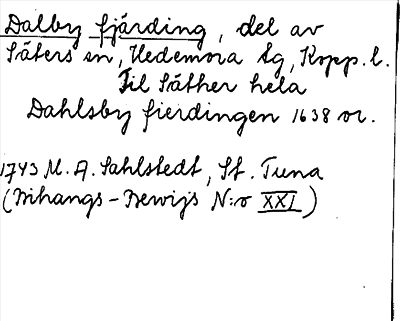 Dalby fjärding, del av
Säters sn, Hedemora tg, Kopp. l.
Til Säther hela
Dahlsby fierdingen 1638 or.
1743 M. A. Sahlstedt, St. Tuna
(Bihangs-Bewijs N:o XXI)